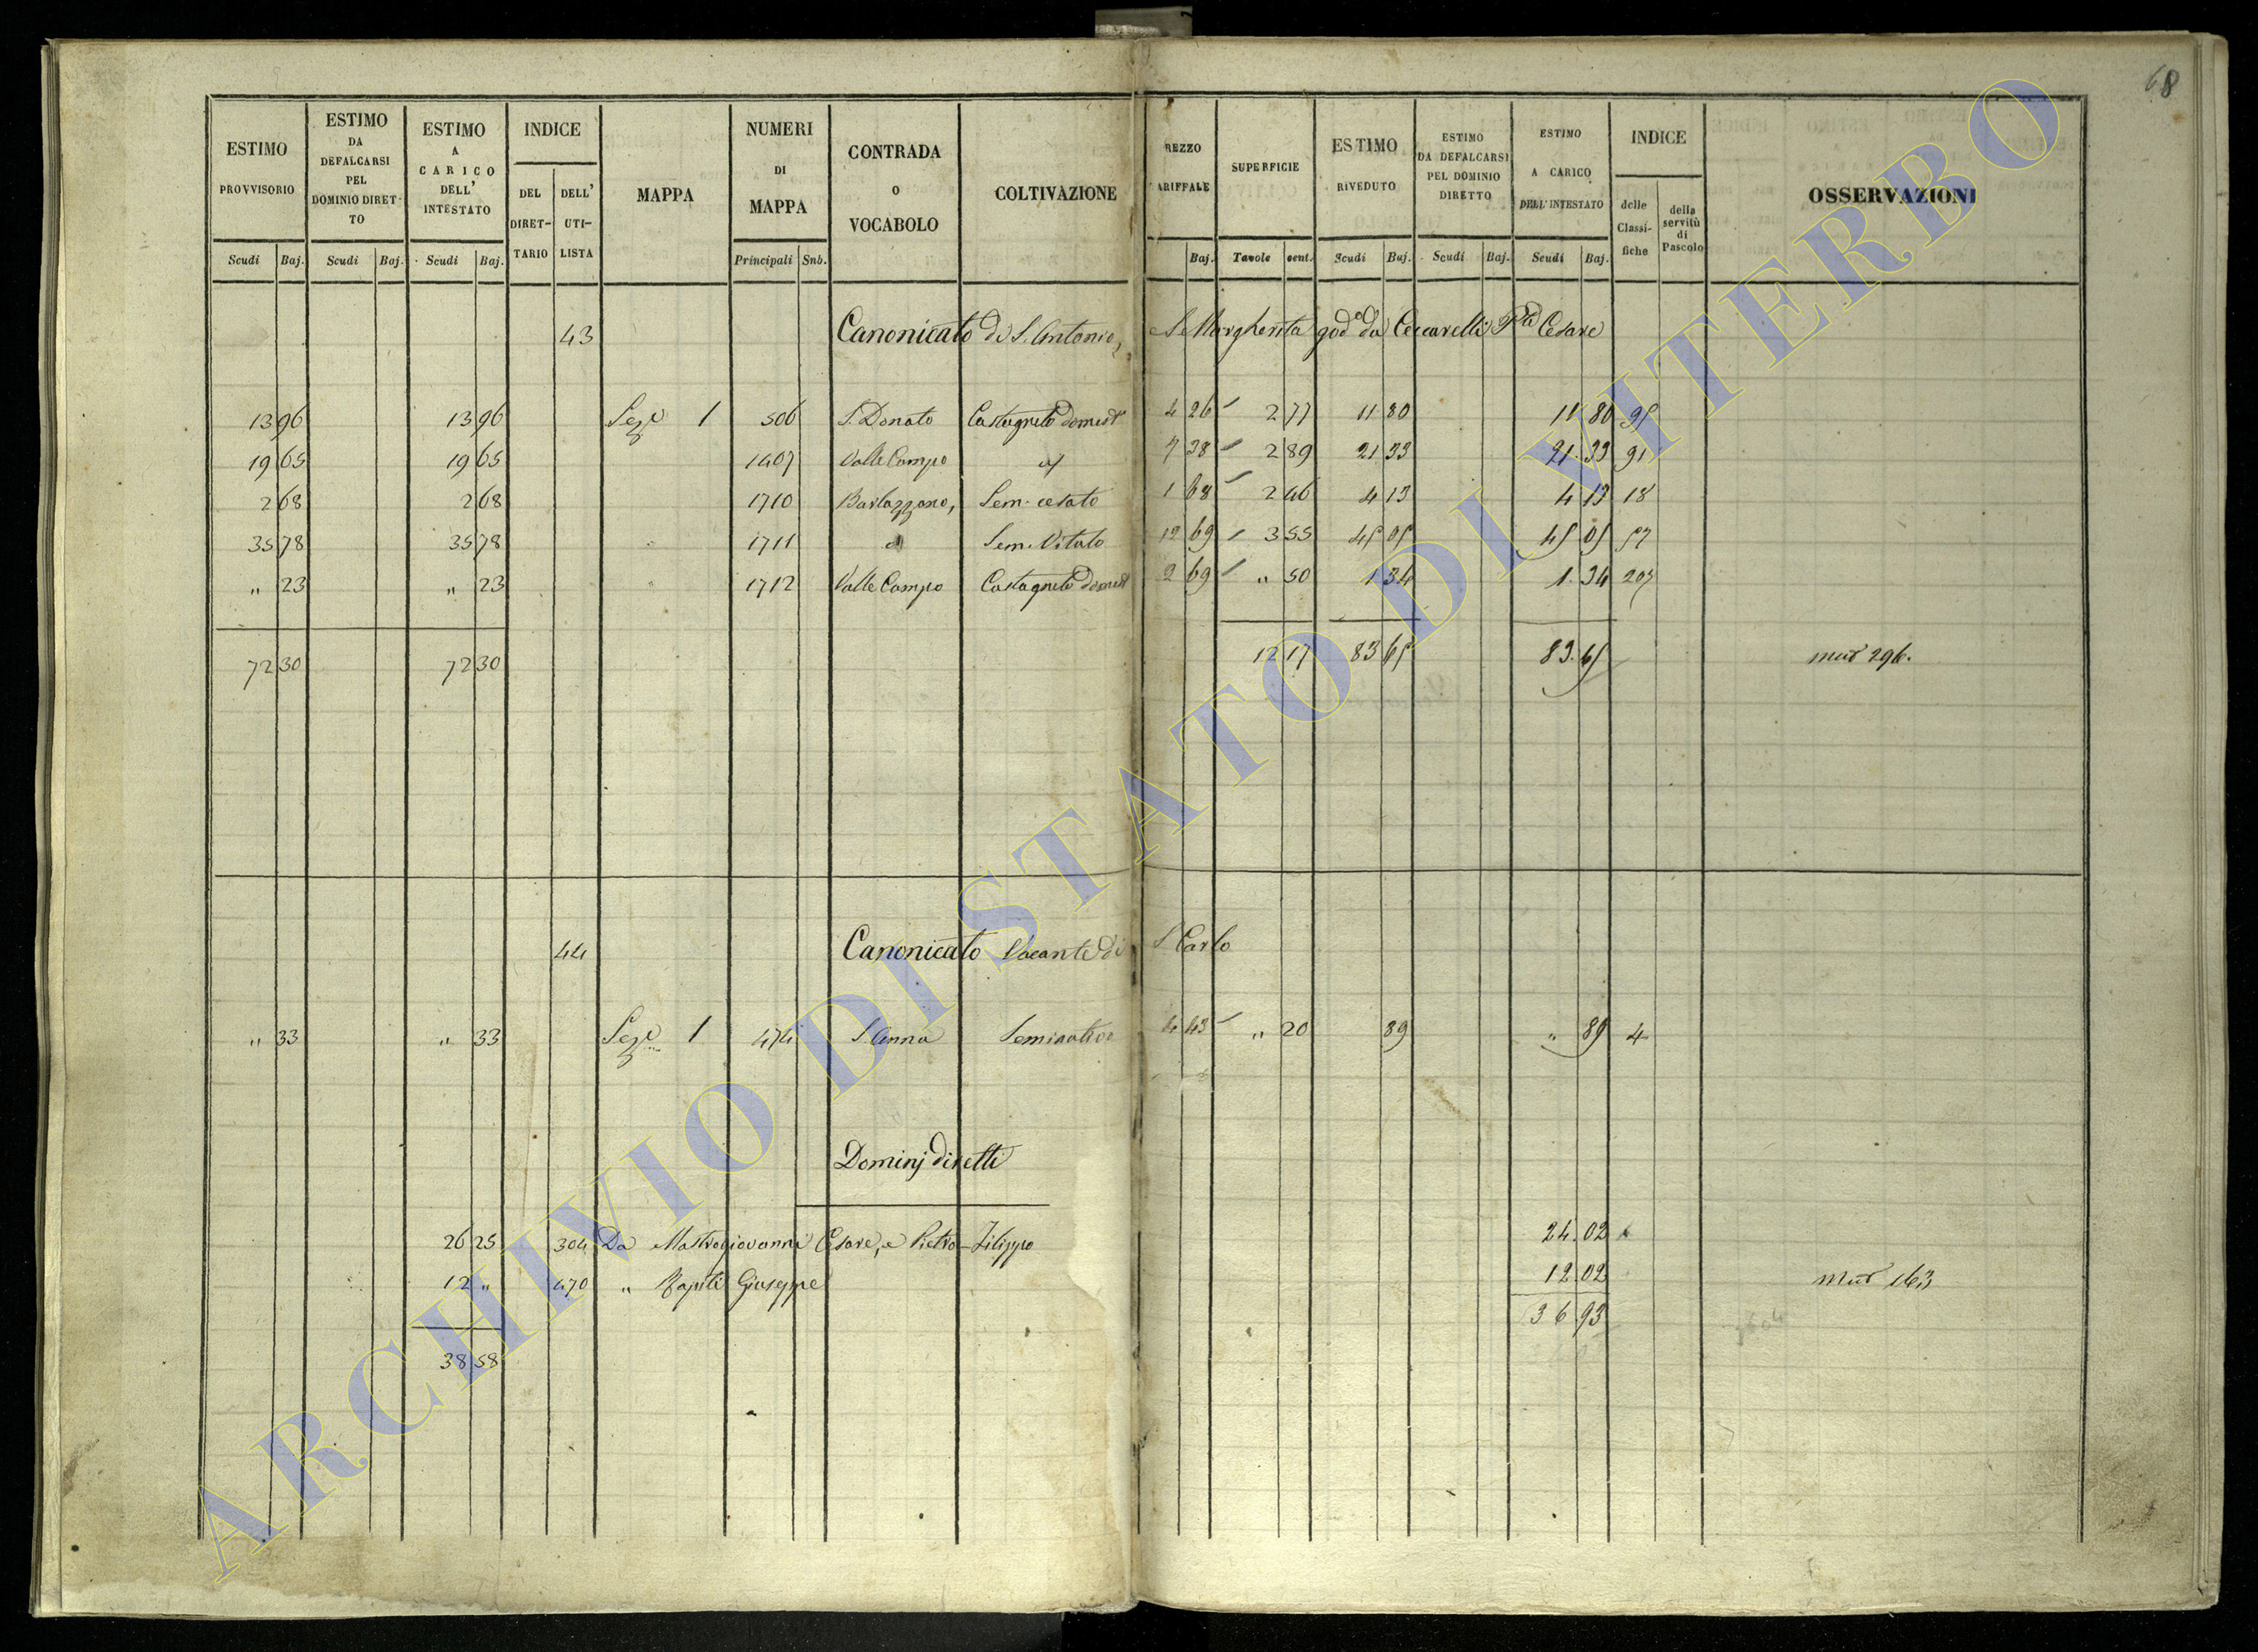 68
ESTIMO PROVVISORIO
ESTIMO DA DEFALCARSI PEL DOMINIO DIRET-TO
ESTIMO A CARICO DELL' INTESTATO
INDICE
DEL DIRET-TARIO
DELL' UTI-LISTA
MAPPA
NUMERI DI MAPPA
CONTRADA O VOCABOLO
COLTIVAZIONE
REZZO ARIFFALE
SUPERFICIE
ESTIMO RIVEDUTO
ESTIMO DA DEFALCARSI PEL DOMINIO DIRETTO
ESTIMO A CARICO DELL'INTESTATO
INDICE
delle Classi-fiche
della servitù di Pascolo
OSSERVAZIONI
Scudi Baj. Scudi Baj. Scudi Baj. Principali Snb. Baj. Tavole cent. Scudi Baj. Scudi Baj. Scudi Baj.
43 Canonicato di S. Antonio, S. Margherita god.o da Ceccarelli Cesare
13 96 13 96 Sez.e 1 506 S. Donato Castagneto domest 4 26 2 77 11 80 11 80 95
19 65 19 65 1407 Valle Campo 7 38 2 89 21 33 21 33 91
2 68 2 68 1710 Barlazzano, Sem. cesato 1 68 2 46 4 13 4 13 18
35 78 35 78 1711 Sem. Vitato 12 69 3 55 45 05 45 05 57
" 23 " 23 1712 Valle Campo Castagneto domest 2 69 " 50 1 34 1 34 205
72 30 72 30 12 17 83 65 83 65 296.
44 Canonicato Vacante di S. Carlo
" 33 " 33 Sez.e 1 474 S. Anna Seminativo 4 43 " 20 89 " 89 4
Dominj diretti
26 25 304 Da Mastrogiovanni Cesare, e Pietro-Filippo 24 02
12 " 470 " Giuseppe 12 02 163
38 58 36 93
ARCHIVIO DI STATO DI VITERBO